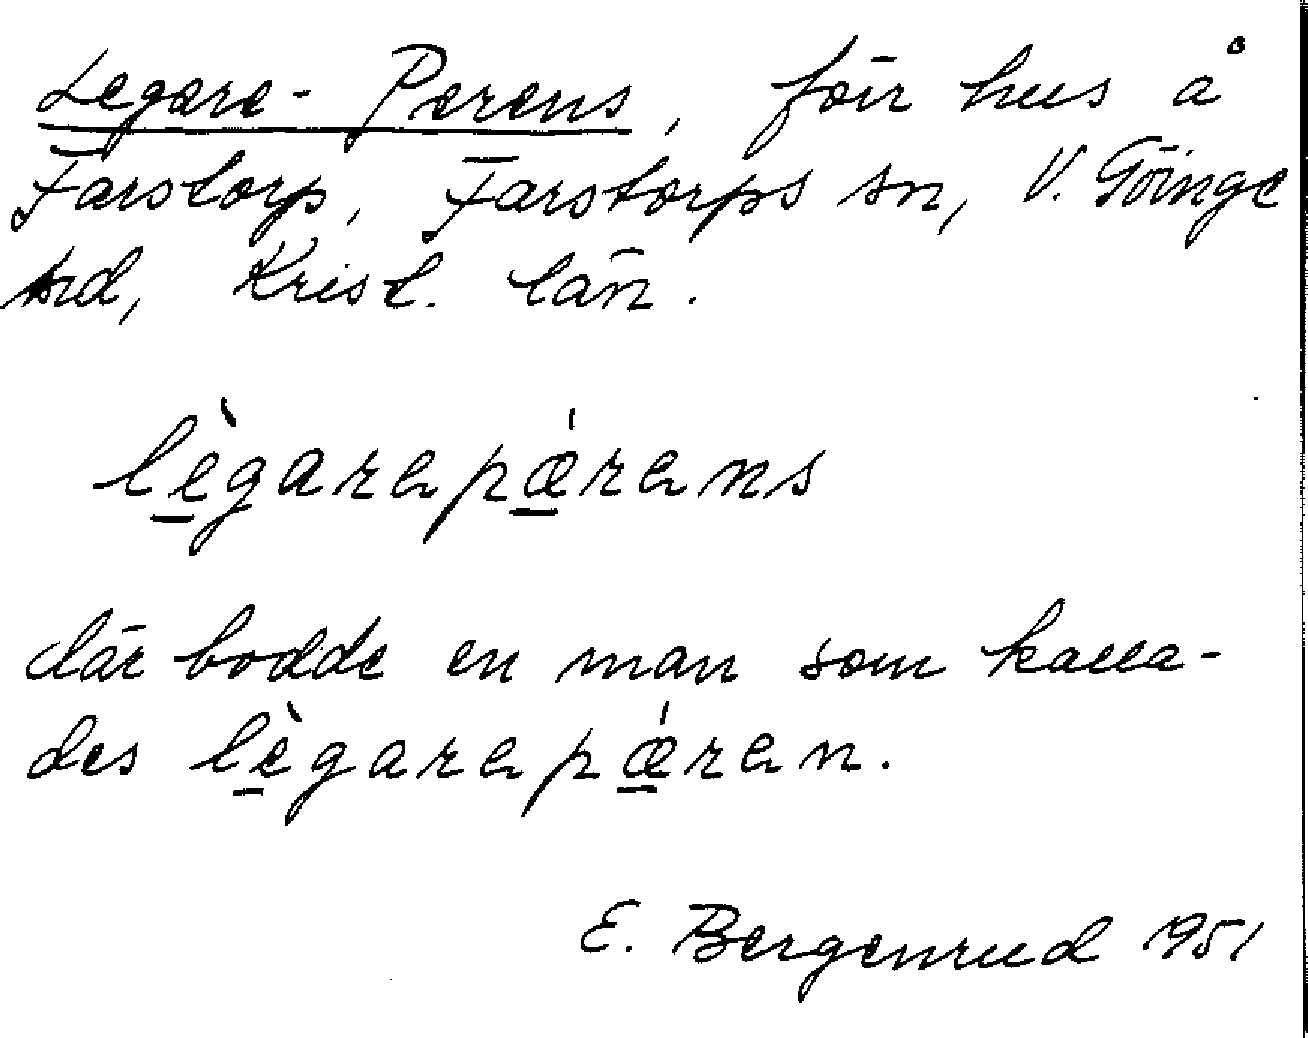 Legare-Perens, förr hus å
Farstorp, Farstorps sn, V. Göinge
hd, Krist. län.
lègarapǽrans
där bodde en man som kalla-
des lègarapǽran.
E. Bergenrud 1951